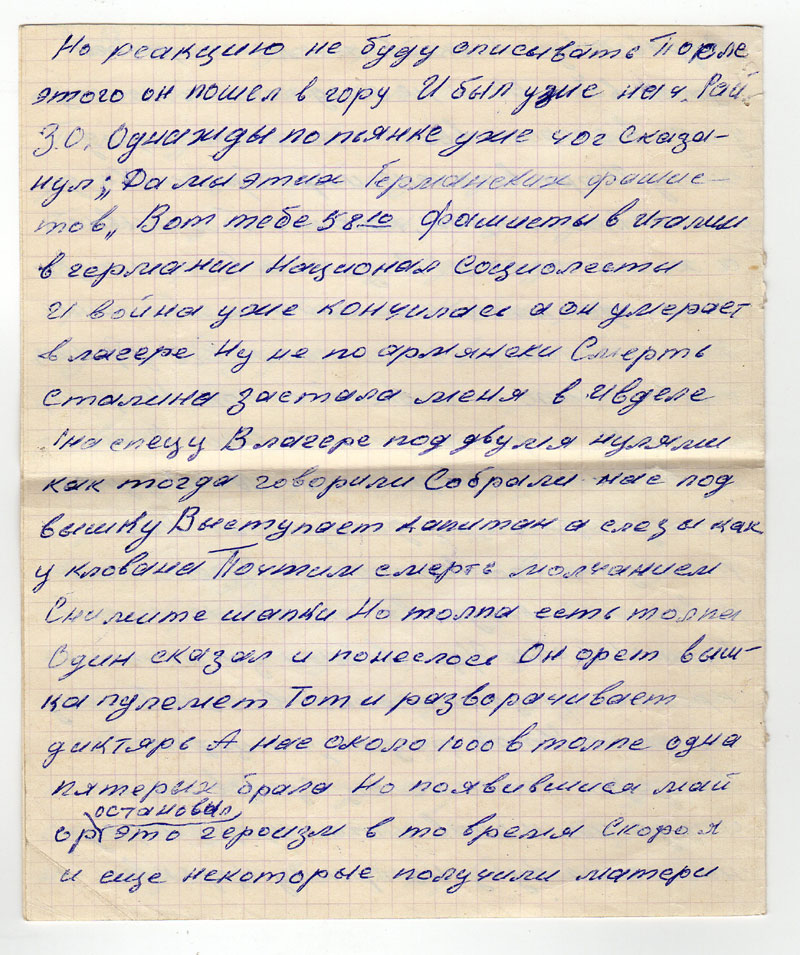 Но реакцию не буду описывать После
этого он пошел в гору И был уже нач. Рай
З.О. Однажды по пьянке уже чог сказа-
нул; „Да мы этих Германских фашис-
тов„ Вот тебе 58 10 фашисты в италии
в германии Национал социолесты
И война уже кончилась а он умерает
в лагере Ну не по армянски Смерть
сталина застала меня в Ивделе
на спецу В лагере под двумя нулями
как тогда говорили Собрали нас под
вышку Выступает капитан а слезы как
у клована Почтим смерть молчанием
Снимите шапки Но толпа есть толпа
Один сказал и понеслось Он орет выш-
ка пулемет Тот и разворачивает
диктярь А нас около 1000 в толпе одна
пятерых брала Но появившийся май
остановил
ор это героизм в то время Скоро я
и еще некоторые получили матери